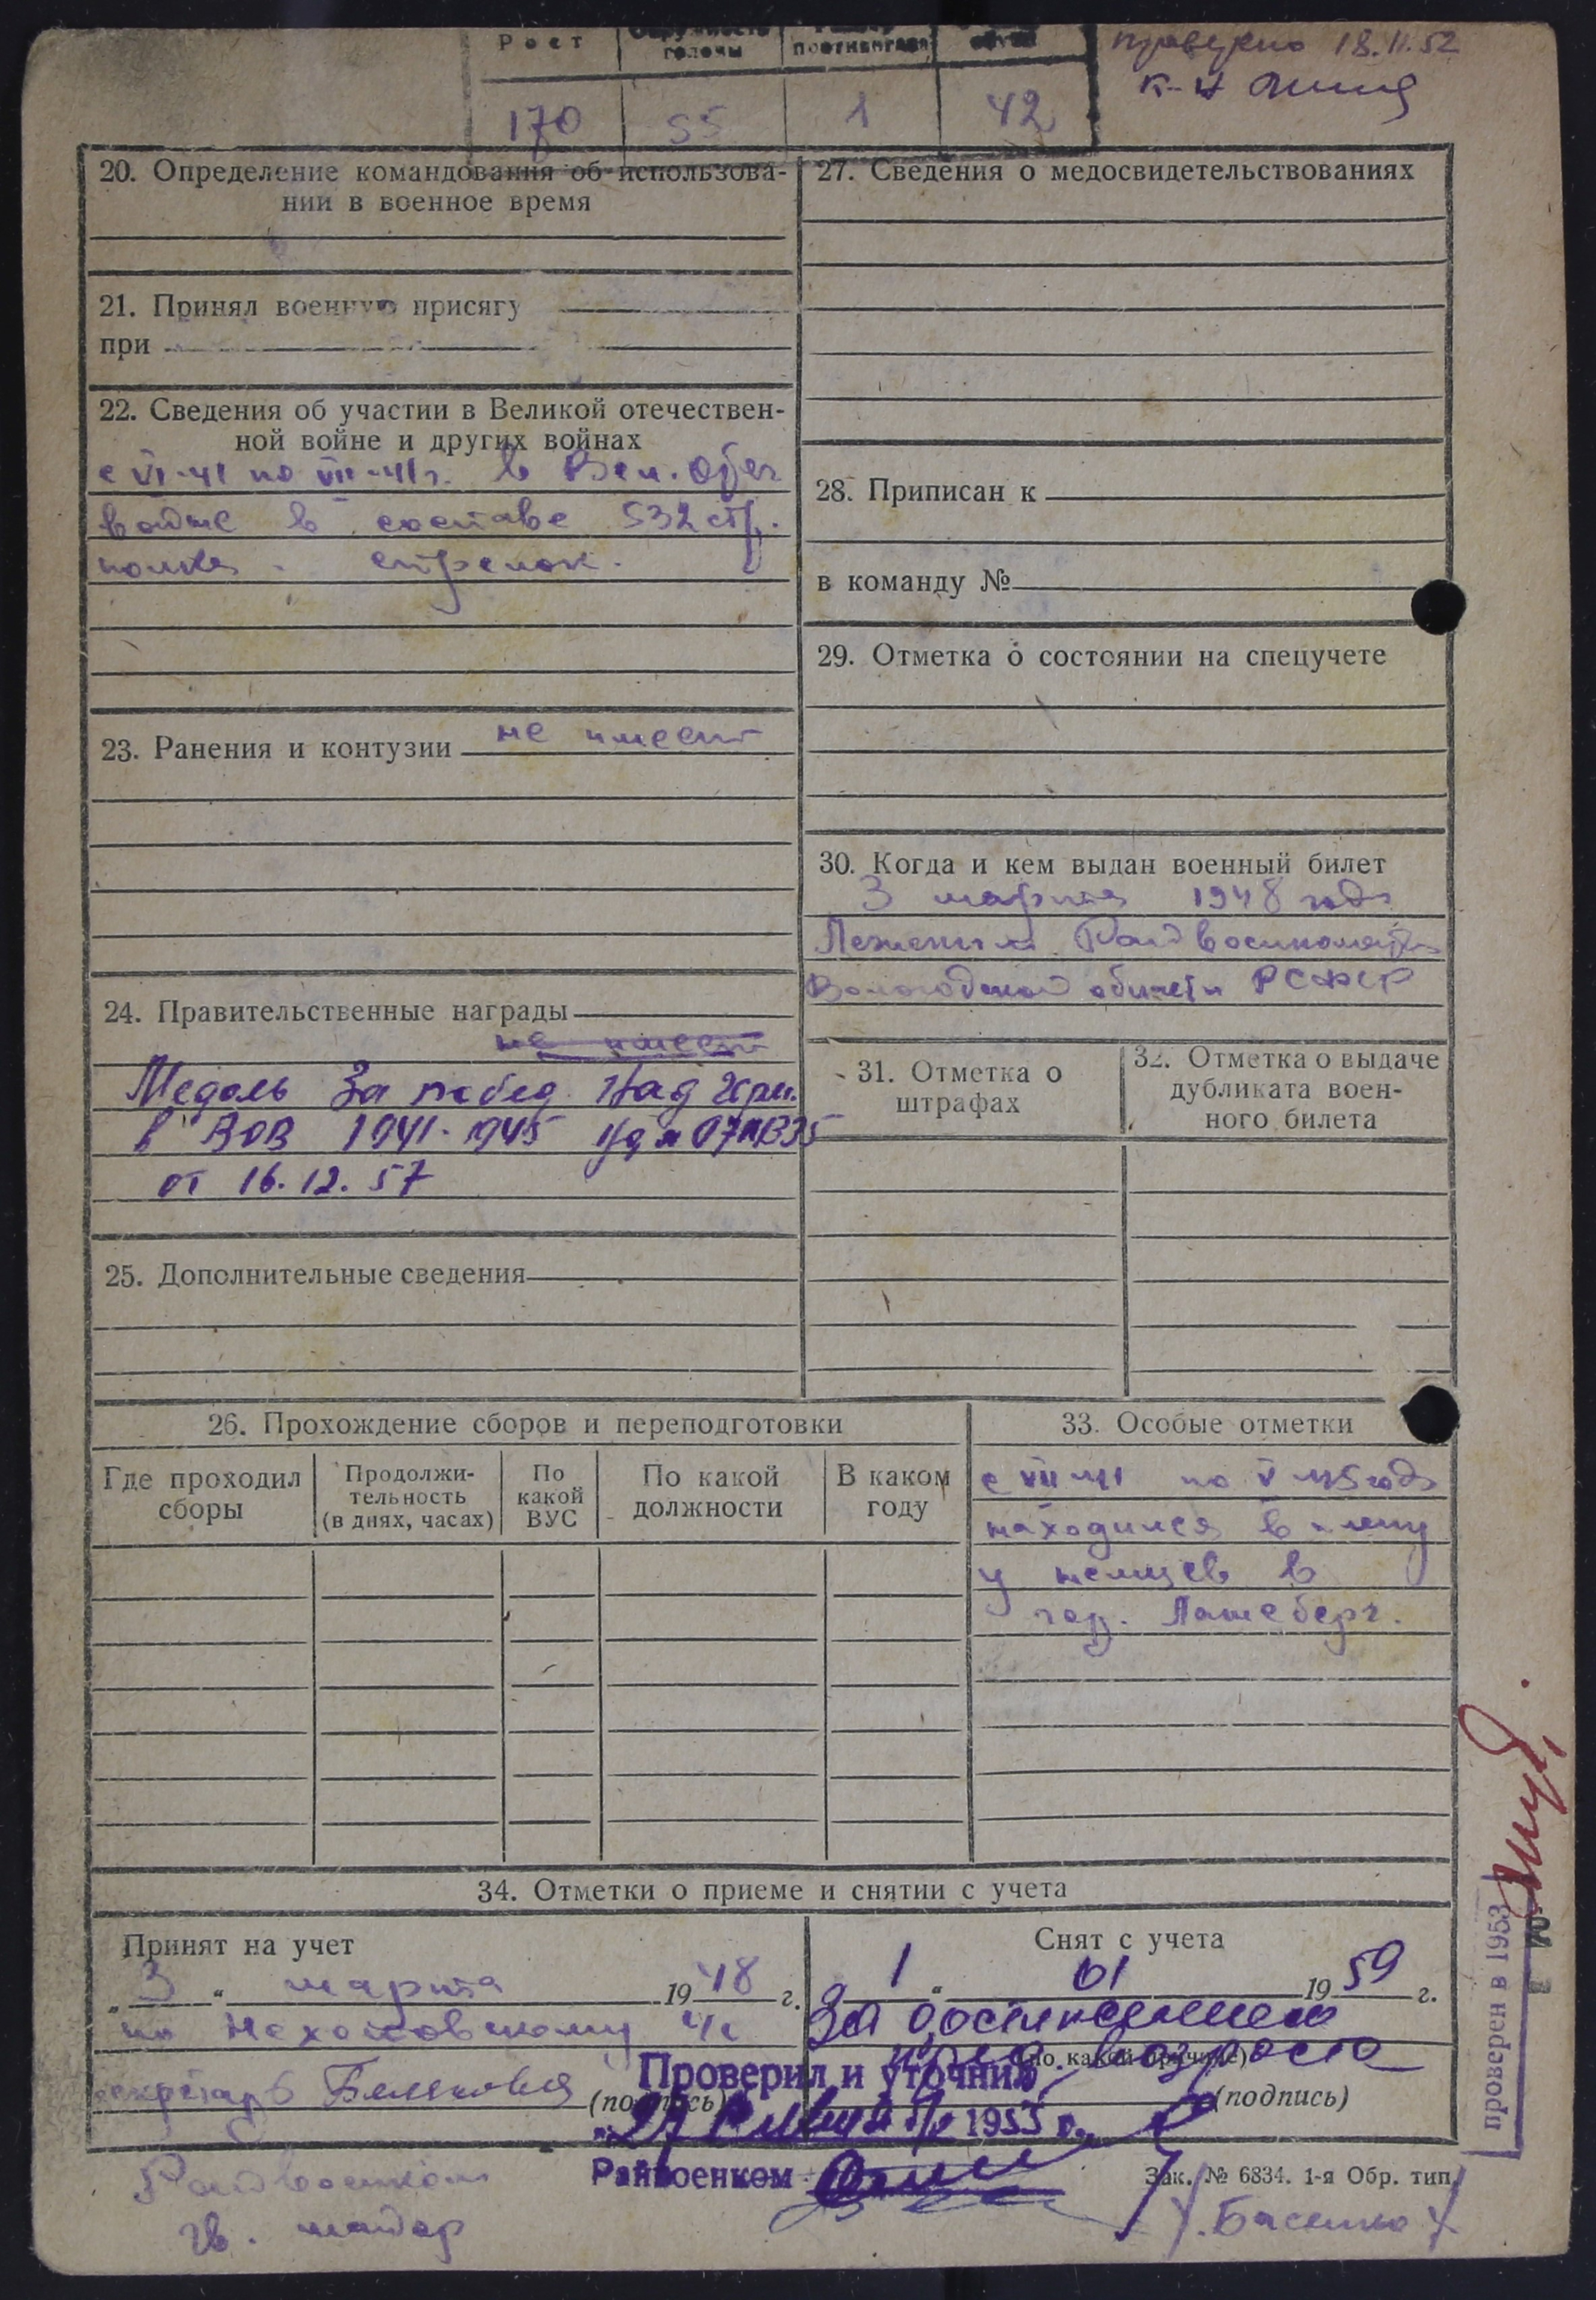 Рост
Окружность головы
Размер противогаза
170 55 1 42
проверено 18.11.52
к-н
20. Определение командования об использова-
нии в военное время
21. Принял военную присягу
при
22. Сведения об участии в Великой отечествен-
ной войне и других войнах
с VI-41 по VII-41г. в Вел. Отеч
войне в составе 532 стр.
полка - стрелок.
23. Ранения и контузии не имеет
24. Правительственные награды
не имеет
Медаль За побед. Над Герм.
в ВОВ 1941-1945 уд №
от 16.12.57
25. Дополнительные сведения
27. Сведения о медосвидетельствованиях
28. Приписан к
в команду №
29. Отметка о состоянии на спецучете
30. Когда и кем выдан военный билет
3 марта 1948 года
Райвоенкомат
Вологодской области РСФСР
31. Отметка о
штрафах
32. Отметка о выдаче
дубликата воен-
ного билета
26. Прохождение сборов и переподготовки
Где проходил
сборы
Продолжи-
тельность
(в днях, часах)
По
какой
ВУС
По какой
должности
В каком
году
33. Особые отметки
с VII-41 по V-45 года
находился в плену
у немцев в
гор. Ламсберг.
34. Отметки о приеме и снятии с учета
Принят на учет
„3“ марта 1948 г.
по
секретарь
(подпись)
Снят с учета
1 “ 01 1959 г.
За достижением
пред. возраста
(по какой причине)
(подпись)
Проверил и уточнил
„27 1953 г.
Райвоенком
Райвоенком
гв. майор
Зак. № 6834. 1-я Обр. тип.
/.Басенко/
проверен в 1953